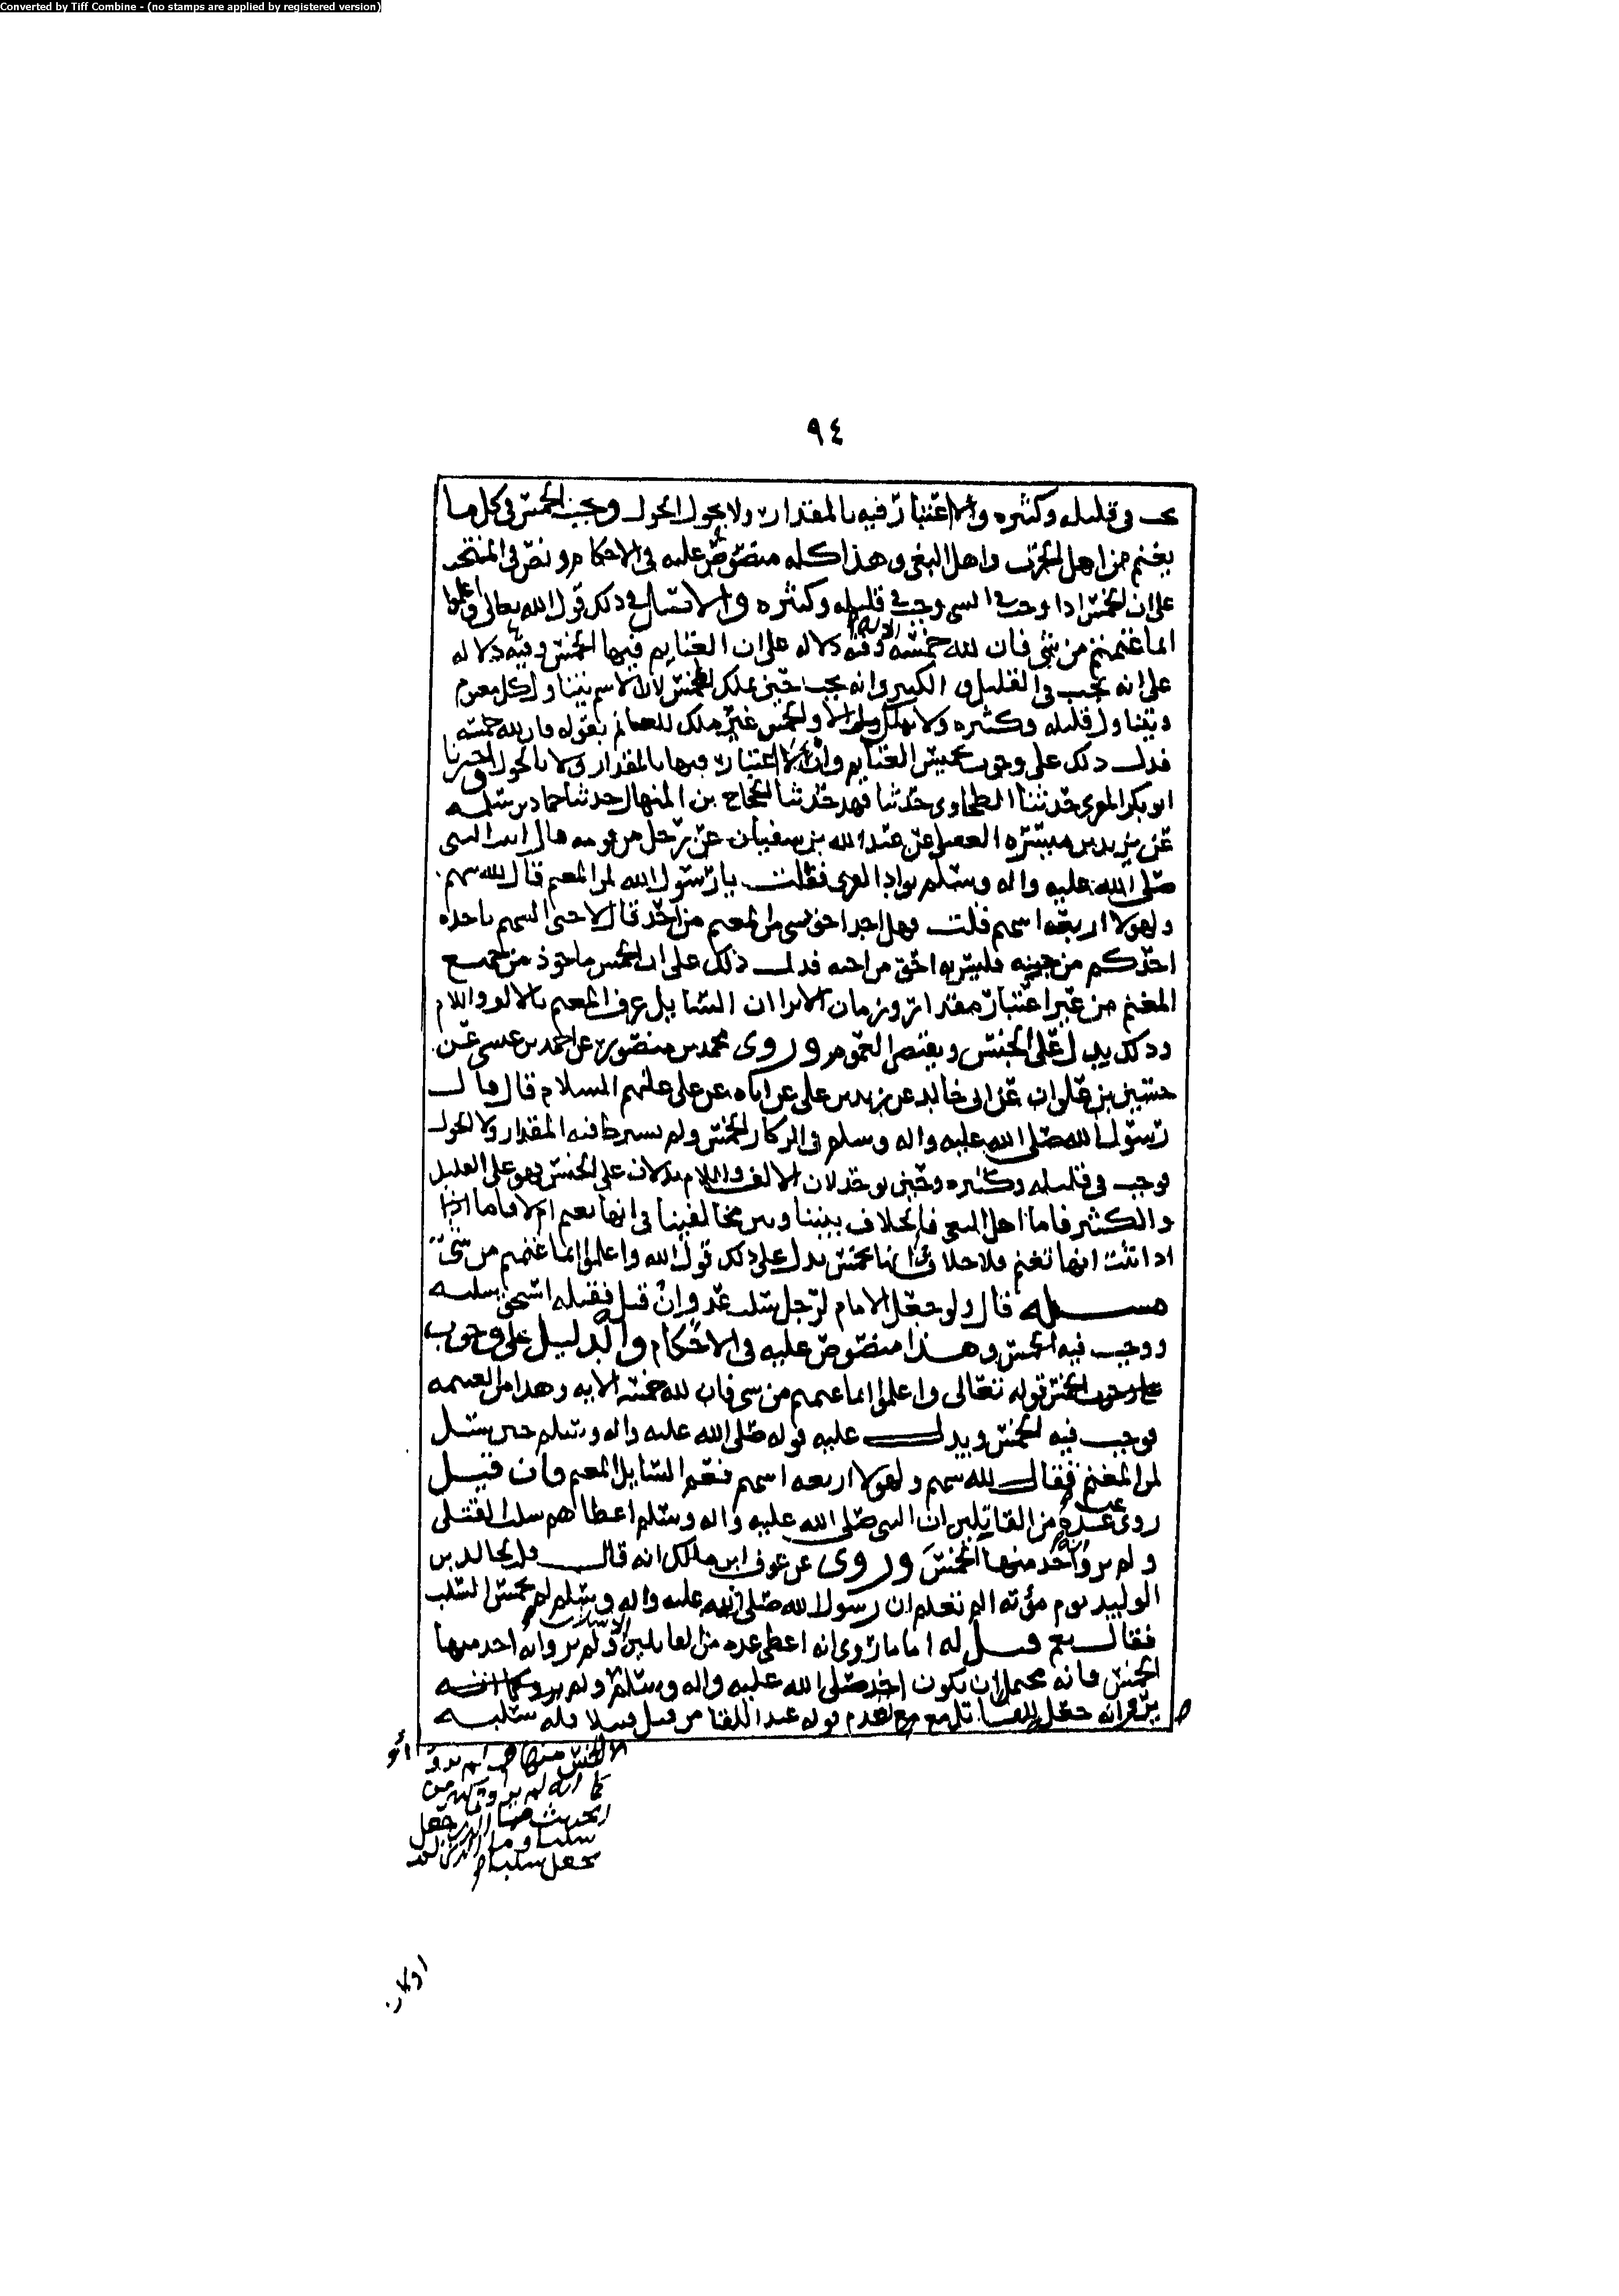 Converted by Tiff Combine - (no stamps are applied by registered version)
٩٤
في قليله وكثيره ولا اعتبار فيه بالمقدار ولا بحول الحول ويجب الخمس في كل ما
يغنم من اهل الحرب واهل البغي وهذا كله منصوص عليه في الاحكام ونص في المنتخب
على ان الخمس اذا وجب في الشي وجب في قليله وكثيره والاصل في ذلك قول الله تعالى واعلموا
انما غنمتم من شي فان لله خمسه الايه وفيه دلاله على ان الغنايم فيها الخمس وفيه دلاله
على انه يجب في القليل والكثير وانه يجب حين يملك الخمس لان الاسم يتناول كل مغنوم
ويتناول قليله وكثيره ولا والخمس غير ملك للغانم بقوله فان لله خمسه
فدل ذلك على وجوب تخميس الغنايم وان لا اعتبار فيها بالمقدار ولا بالحول اخبرنا
ابو بكر المقري حدثنا الطحاوي حدثنا فهد حدثنا الحجاج بن المنهال حدثنا حماد بن سلمه
عن بن ميسره العقيلي عن عبد الله بن سفيان عن رجل من قومه قال اتيت النبي
صلى الله عليه واله وسلم بوادي القرى فقلت يا رسول الله لمن المغنم قال لله سهم
ولهولا اربعه اسهم قلت فهل احد احق بشي من المغنم من احد قال لا حتى السهم ياخذه
احدكم من جنبه فليس به احق من اخيه فدل ذلك على ان الخمس ماخوذ من جميع
المغنم من غير اعتبار مقدار وزمان الا ترى ان السايل عرف المغنم بالالف واللام
وذلك يدل على الجنس ويقتضي العموم وروى محمد بن منصور عن احمد بن عيسى عن
حسين بن علوان عن ابي خالد عن زيد بن علي عن ابائه عن علي عليهم السلام قال قال
رسول الله صلى الله عليه واله وسلم في الركاز الخمس ولم يشترط فيه المقدار ولا الحول
فوجب في قليله وكثيره وحين يوخذ لان الالف واللام يدلان على الجنس فهو على القليل
والكثير فاما اهل البغي فالخلاف بيننا وبين مخالفينا في انها تغنم ام لا فاما
اذا ثبت انها تغنم فلا خلاف في انها تخمس يدل على ذلك قول الله واعلموا انما غنمتم من شي
مسئله قال ولو جعل الامام لرجل سلب عدو ان قتل فقتله استحق سلبه
ووجب فيه الخمس وهذا منصوص عليه في الاحكام والدليل على وجوب
الخمس قوله تعالى واعلموا انما غنمتم من شي فان لله خمسه الايه وهذا من الغنيمه
فوجب فيه الخمس ويدل عليه قوله صلى الله عليه واله وسلم حين سئل
لمن المغنم فقال لله سهم ولهولا اربعه اسهم فعم السايل المغنم فان قيل
روي عن عدة من القاتلين ان النبي صلى الله عليه واله وسلم اعطاهم سلب القتلى
ولم يرو انه اخذ منها الخمس وروي عن عوف ابن مالك انه قال قلت لخالد بن
الوليد يوم مؤته الم تعلم ان رسول الله صلى الله عليه واله وسلم لم يخمس السلب
فقال نعم قيل له اما ما روي انه اعطى عدة من القاتلين الاسلاب ولم يرو انه اخذ منها
الخمس فانه يحتمل ان يكون اخذ صلى الله عليه واله وسلم ولم يرو
جعل للقاتل مع تقدم قوله عند اللقا من قتل قتيلا فله سلبه
الخمس منها ولم يرو
كما انه لم يرو في كثير من
الحديث